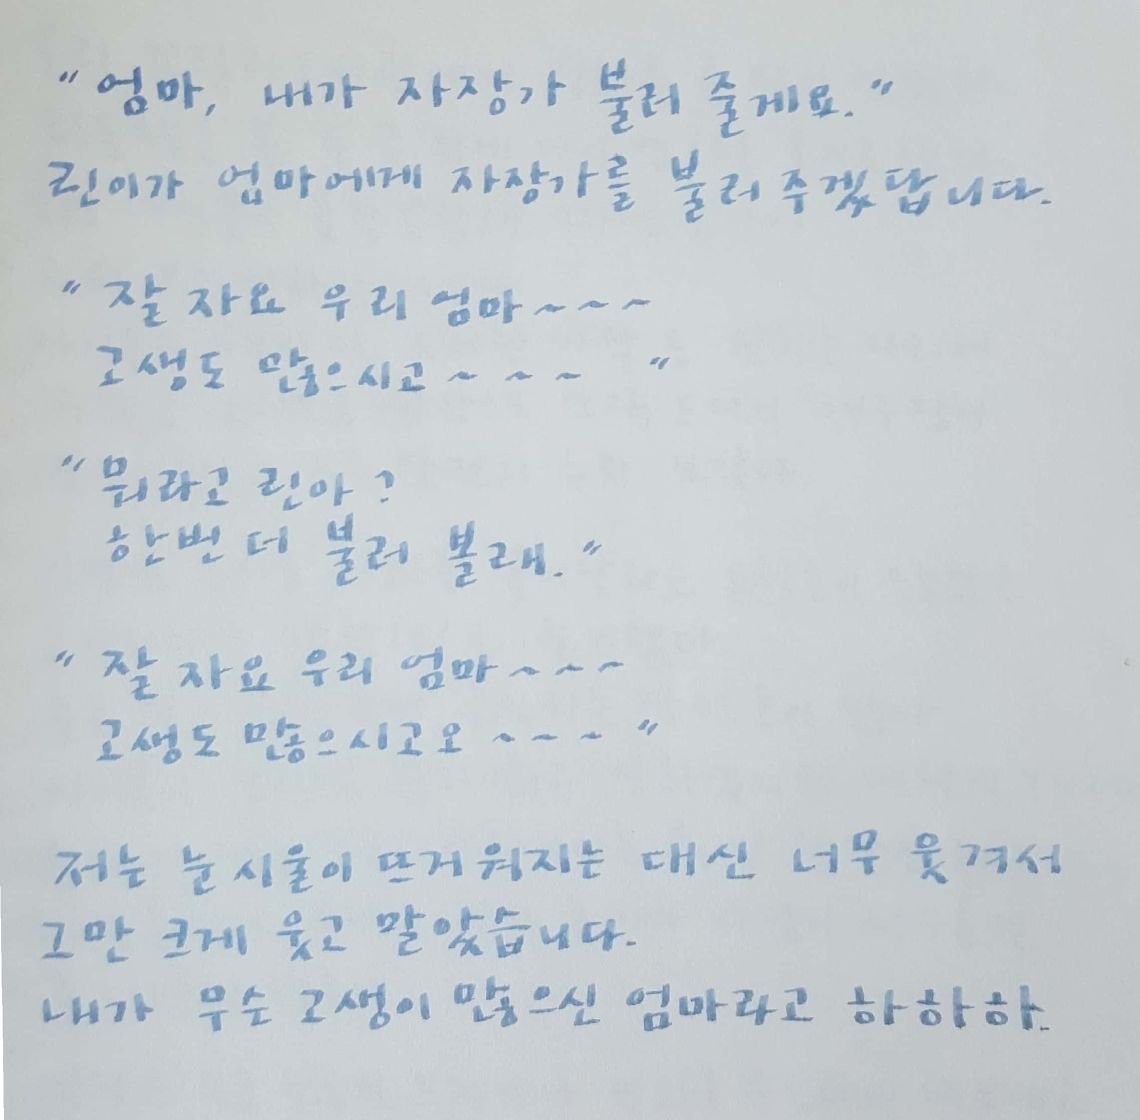 "엄마, 내가 자장가 불러 줄게요."
린이가 엄마에게 자장가를 불러주겠답니다.
"잘 자요 우리 엄마~~~
고생도 많으시고~~~ "
"뭐라고 린아?
한번 더 불러 볼래."
"잘 자요 우리 엄마~~~
고생도 많으시고오 ~~~"
저는 눈시울이 뜨거워지는 대신 너무 웃겨서
그만 크게 웃고 말았습니다.
내가 무슨 고생이 많으신 엄마라고 하하하.